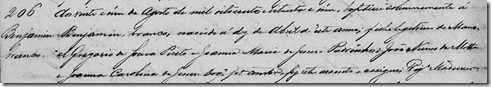 206 Aos vinte e um de Agosto de mil oitocentos e oitenta e um, baptisei solemnemente a
Benjamin Benjamim, branco, nascido a dez de Abril d'este anno, filho legitimo de Ma-
branco. el Gregorio de Souza Preto e Joanna Maria de Jesus. Padrinhos José Nunes de Mattos
e Joanna Carolina de Jesus.